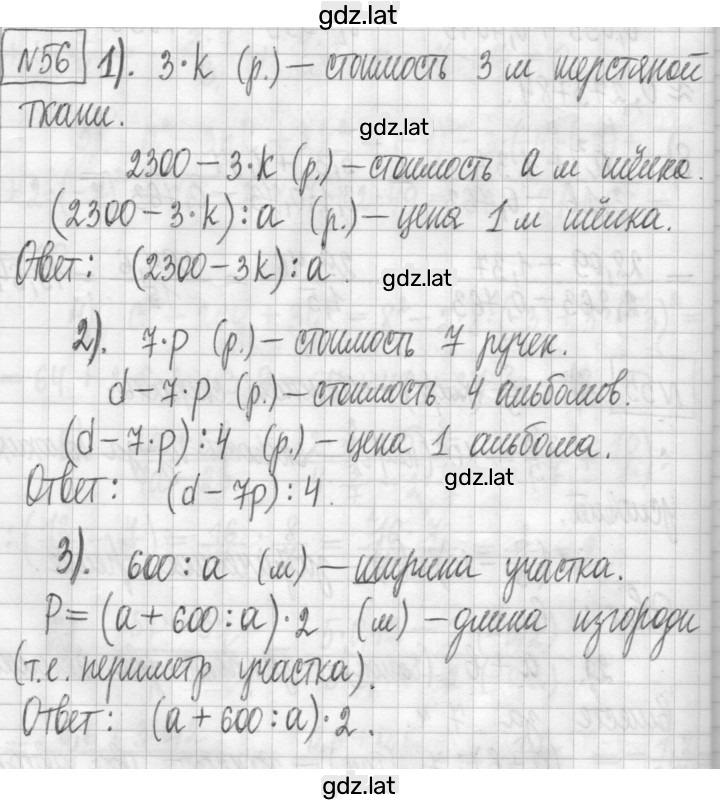 gdz.lat
№56 1). 3·k (р.) – стоимость 3 м шерстяной
ткани.
gdz.lat
2300 – 3·k (р.) – стоимость a м шёлка.
(2300 – 3·k) : a (р.) – цена 1 м шёлка.
Ответ: (2300 – 3k) : a
gdz.lat
2). 7·p (р.) – стоимость 7 ручек.
d – 7·p (р.) – стоимость 4 альбомов.
(d – 7·p) : 4 (р.) – цена 1 альбома.
gdz.lat
Ответ: (d – 7p) : 4.
3). 600 : a (м) – ширина участка.
P = (a + 600 : a)·2 (м) – длина изгороди
(т.е. периметр участка).
Ответ: (a + 600 : a)·2.
gdz.lat